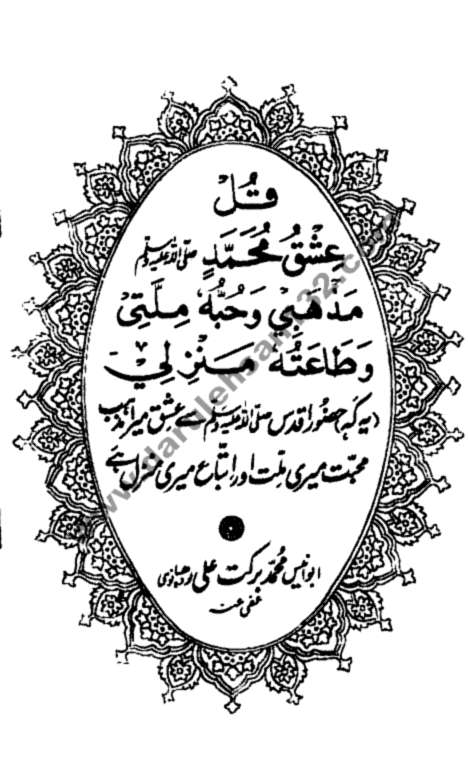 قُلْ
عِشْقُ مُحَمَّدٍ صلی اللہ علیہ وسلم
مَذْهَبِيْ وَحُبُّهٗ مِلَّتِيْ
وَطَاعَتُهٗ مَنْزِلِيْ
(یہ کہ حضور اقدس صلی اللہ علیہ وسلم سے عشق میرا مذہب
محبت میری ملت اور اتباع میری منزل ہے
ابوانیس محمد برکت علی لودھیانوی
عفی عنہ
www.darulehsan132.com